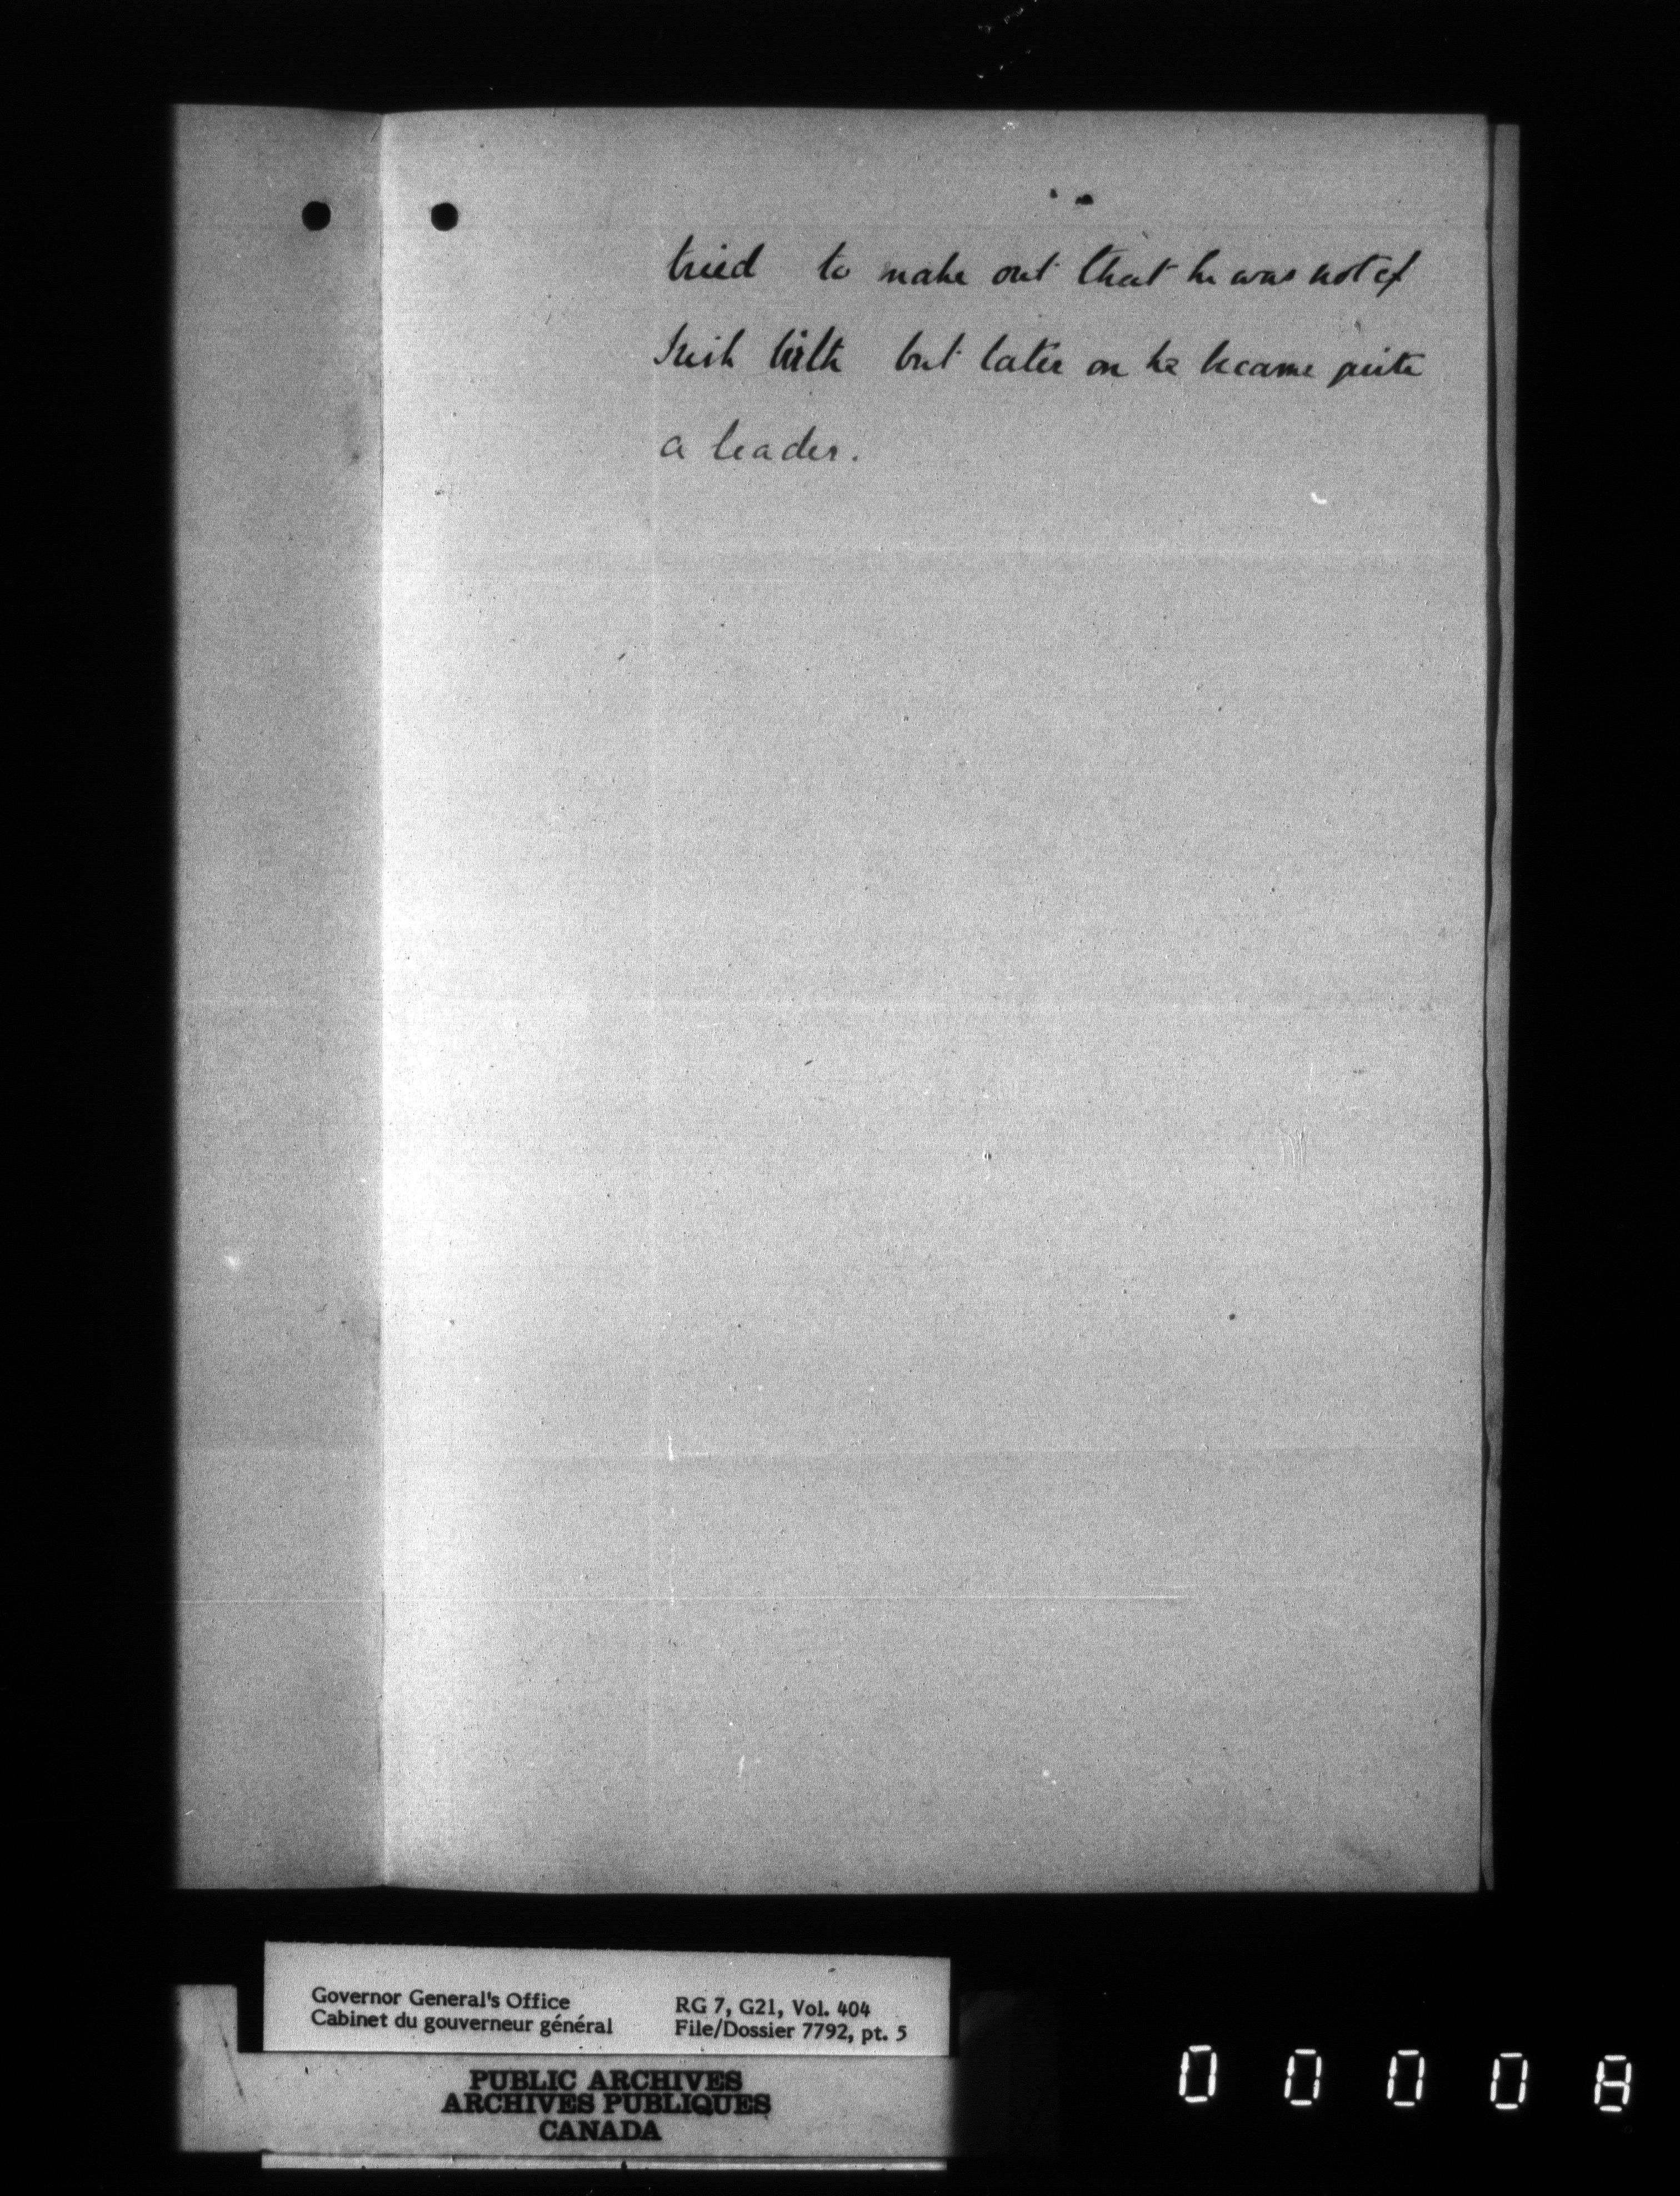 tried to make out that he was not of
Irish birth but later on he became quite
a leader.
Governor General's Office
Cabinet du gouverneur général
RG 7, G21, Vol. 404
File/Dossier 7792, pt. 5
PUBLIC ARCHIVES
ARCHIVES PUBLIQUES
CANADA
0 0 0 0 8